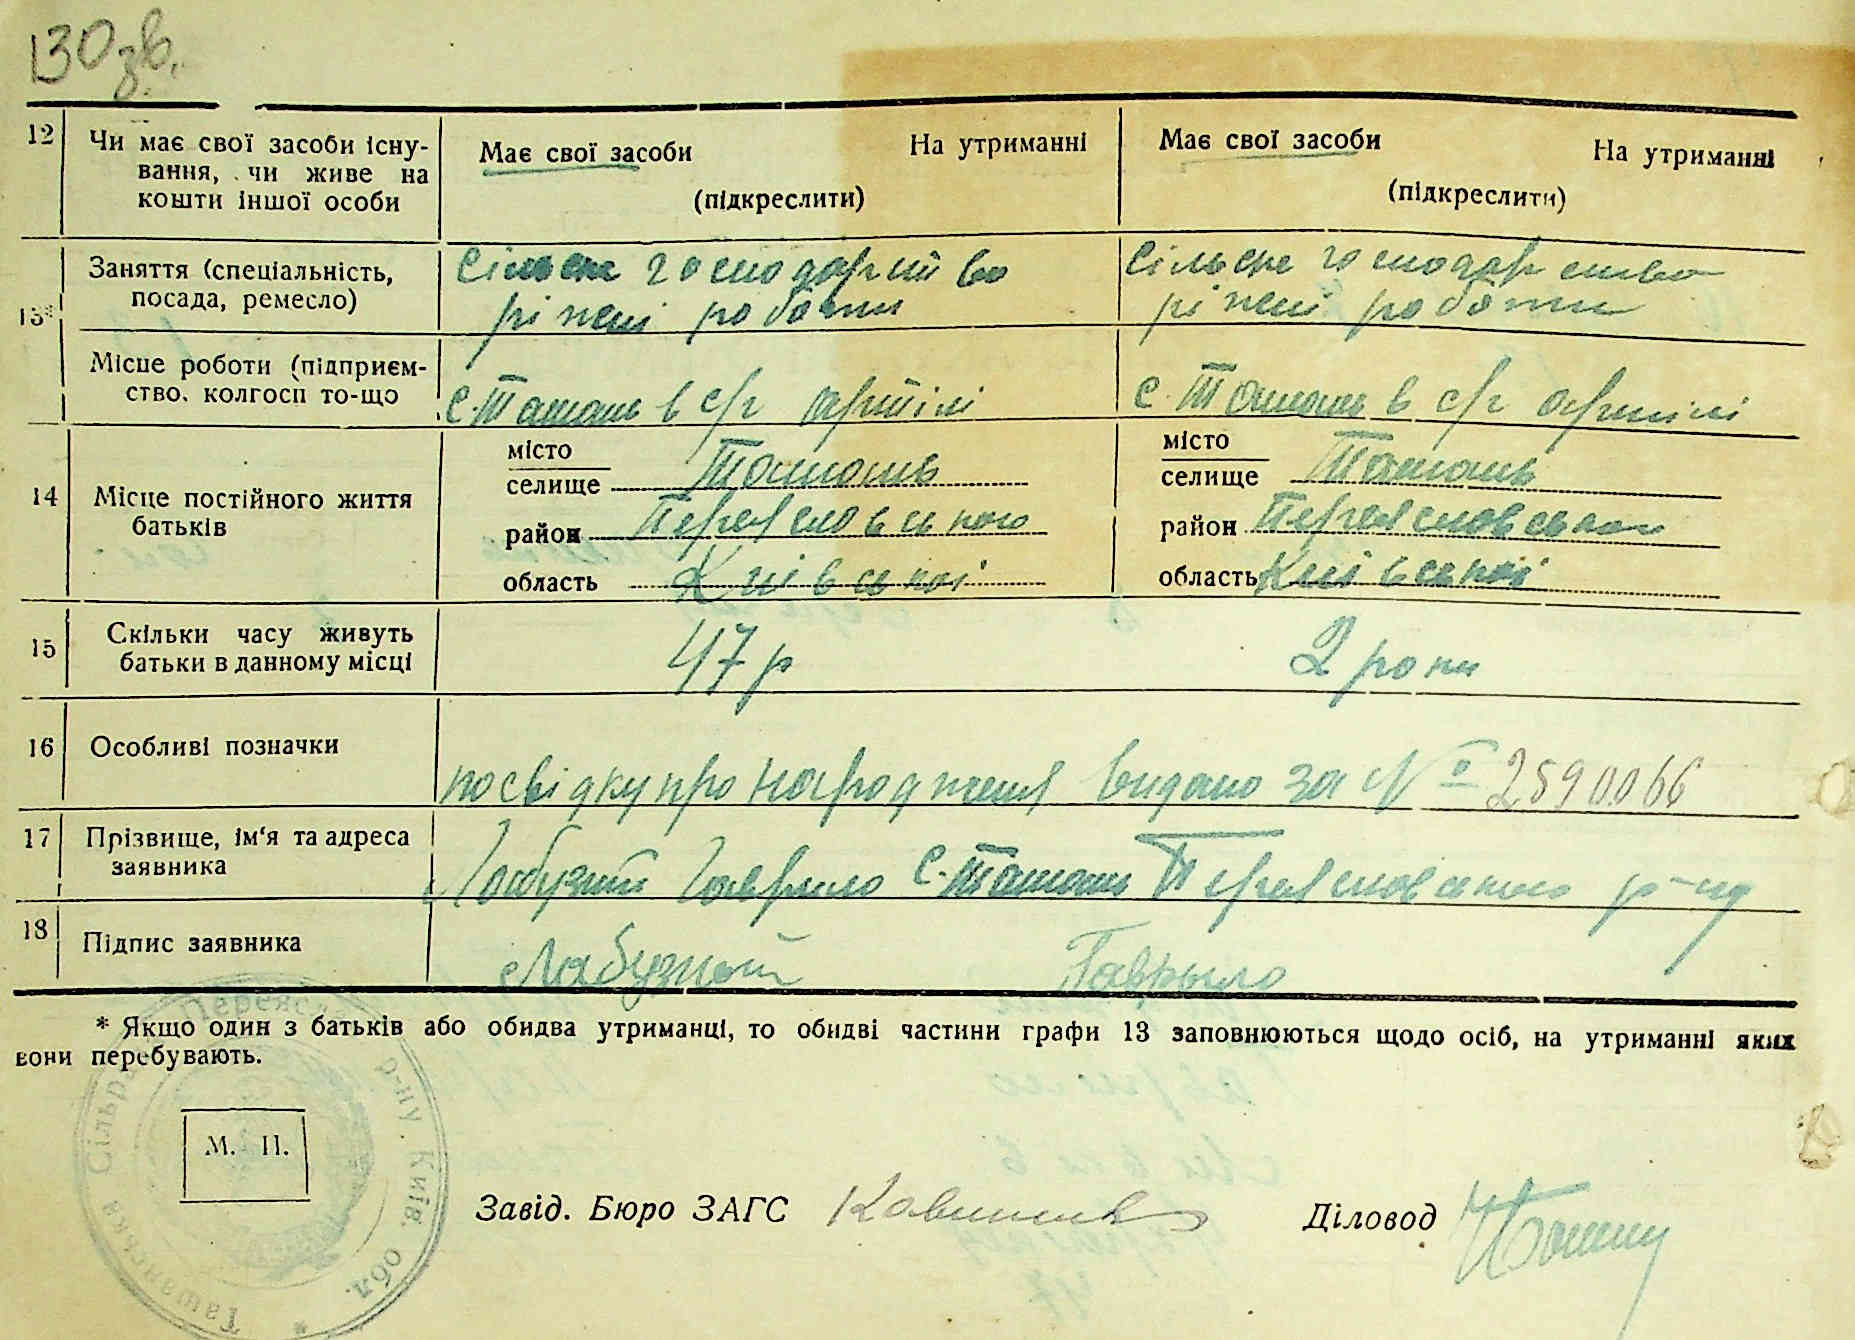 130 зв.
12 Чи має свої засоби існу-
вання, чи живе на
кошти іншої особи
Має свої засоби На утриманні
(підкреслити)
Має свої засоби На утриманні
(підкреслити)
13*
Заняття (спеціальність,
посада, ремесло)
Сільське господарство
ріжні роботи
Сільске господарство
ріжні роботи
Місце роботи (підприєм-
ство, колгосп то-що
с. Ташань в с/г артілі
с. Ташань в с/г артілі
14 Місце постійного життя
батьків
місто
селище Ташань
район Переяславського
область Київської
місто
селище Ташань
район Переяславського
область Київської
15 Скільки часу живуть
батьки в данному місці
47 р
2 роки
16 Особливі позначки
посвідку про народження видано за № 2590066
17 Прізвище, ім'я та адреса
заявника
Лабузний Гаврило с. Ташань Переяславського р-ну
18 Підпис заявника
Лабузний Гаврыло
* Якщо один з батьків або обидва утриманці, то обидві частини графи 13 заповнюються щодо осіб, на утриманні яких
вони перебувають.
М. П.
Ташанська Сільра Переясл р-ну Київ. обл. *
Завід. Бюро ЗАГС
Діловод